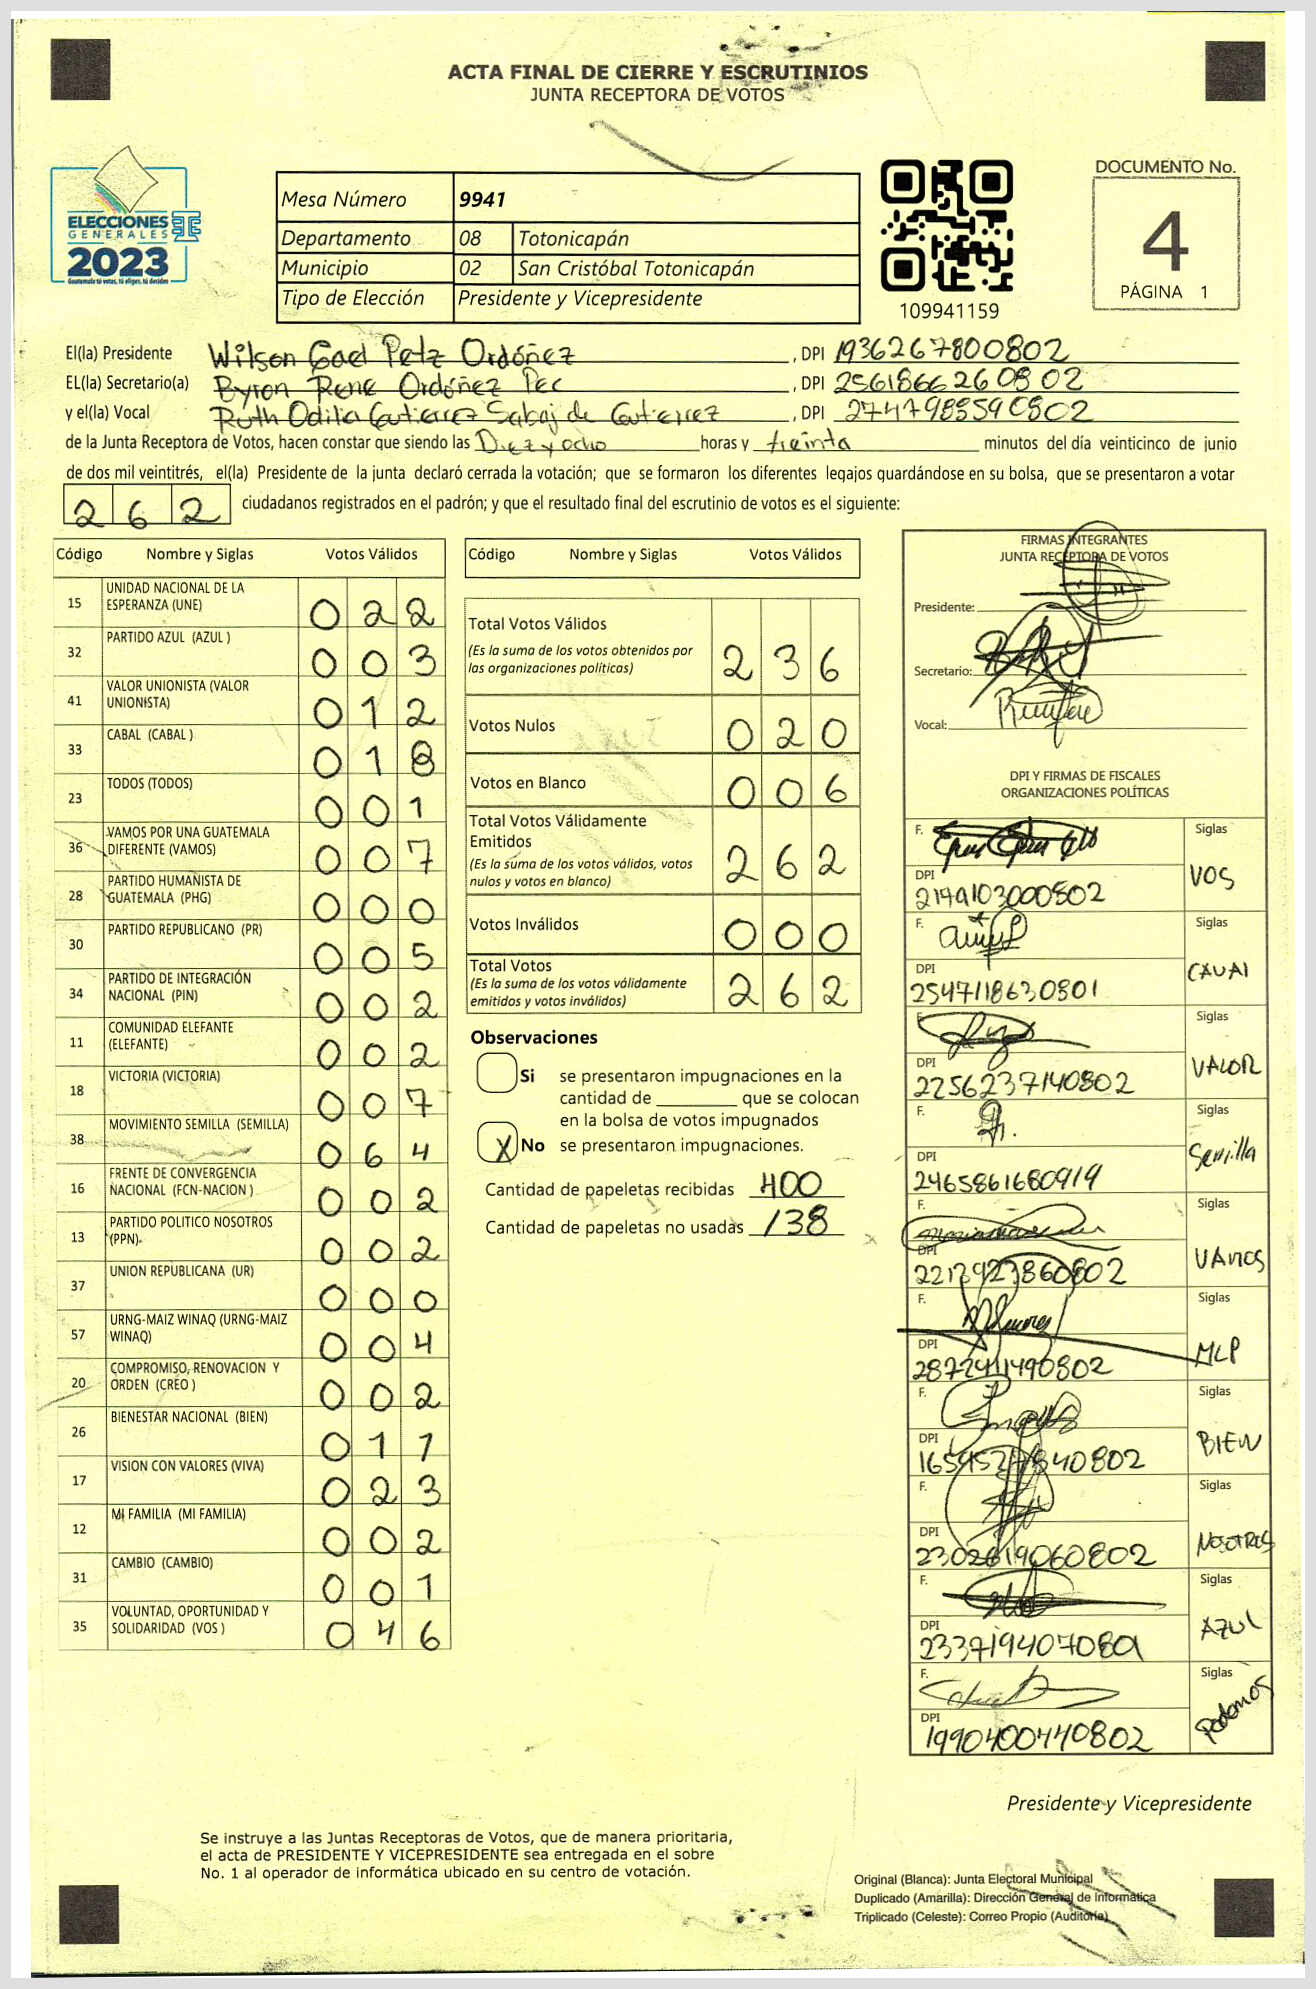 ACTA FINAL DE CIERRE Y ESCRUTINIOS
JUNTA RECEPTORA DE VOTOS
ELECCIONES
GENERALES
2023
Guatemala tú votas, tú eliges, tú decides
Mesa Número 9941
Departamento 08 Totonicapán
Municipio 02 San Cristóbal Totonicapán
Tipo de Elección Presidente y Vicepresidente
109941159
DOCUMENTO No.
4
PÁGINA 1
El(la) Presidente Wilson Gael Petz Ordóñez, DPI 1936267800802
EL(la) Secretario(a) Byron Rene Ordóñez Pec, DPI 2561866260802
y el(la) Vocal Ruth Odilia Gutierrez Sabaj de Gutierrez, DPI 2747985590802
de la Junta Receptora de Votos, hacen constar que siendo las Diez y ocho horas y treinta minutos del día veinticinco de junio
de dos mil veintitrés, el(la) Presidente de la junta declaró cerrada la votación; que se formaron los diferentes legajos guardándose en su bolsa, que se presentaron a votar
262 ciudadanos registrados en el padrón; y que el resultado final del escrutinio de votos es el siguiente:
Código Nombre y Siglas Votos Válidos
15 UNIDAD NACIONAL DE LA ESPERANZA (UNE) 022
32 PARTIDO AZUL (AZUL ) 003
41 VALOR UNIONISTA (VALOR UNIONISTA) 012
33 CABAL (CABAL ) 018
23 TODOS (TODOS) 001
36 VAMOS POR UNA GUATEMALA DIFERENTE (VAMOS) 007
28 PARTIDO HUMANISTA DE GUATEMALA (PHG) 000
30 PARTIDO REPUBLICANO (PR) 005
34 PARTIDO DE INTEGRACIÓN NACIONAL (PIN) 002
11 COMUNIDAD ELEFANTE (ELEFANTE) 002
18 VICTORIA (VICTORIA) 007
38 MOVIMIENTO SEMILLA (SEMILLA) 064
16 FRENTE DE CONVERGENCIA NACIONAL (FCN-NACION ) 002
13 PARTIDO POLITICO NOSOTROS (PPN) 002
37 UNION REPUBLICANA (UR) 000
57 URNG-MAIZ WINAQ (URNG-MAIZ WINAQ) 004
20 COMPROMISO, RENOVACION Y ORDEN (CREO ) 002
26 BIENESTAR NACIONAL (BIEN) 011
17 VISION CON VALORES (VIVA) 023
12 MI FAMILIA (MI FAMILIA) 002
31 CAMBIO (CAMBIO) 001
35 VOLUNTAD, OPORTUNIDAD Y SOLIDARIDAD (VOS ) 046
Código Nombre y Siglas Votos Válidos
Total Votos Válidos 236
(Es la suma de los votos obtenidos por
las organizaciones políticas)
Votos Nulos 020
Votos en Blanco 006
Total Votos Válidamente
Emitidos 262
(Es la suma de los votos válidos, votos
nulos y votos en blanco)
Votos Inválidos 000
Total Votos 262
(Es la suma de los votos válidamente
emitidos y votos inválidos)
Observaciones
Si se presentaron impugnaciones en la
cantidad de ________ que se colocan
en la bolsa de votos impugnados
X No se presentaron impugnaciones.
Cantidad de papeletas recibidas 400
Cantidad de papeletas no usadas 138
FIRMAS INTEGRANTES
JUNTA RECEPTORA DE VOTOS
Presidente:
Secretario:
Vocal:
DPI Y FIRMAS DE FISCALES
ORGANIZACIONES POLÍTICAS
F. Siglas VOS
DPI 2149103000802
F. Siglas CAVAl
DPI 2547118630801
F. Siglas VALOR
DPI 2256237140802
F. Siglas Semilla
DPI 2465861680919
F. Siglas VAMOS
DPI 2213923860802
F. Siglas MLP
DPI 2872411490802
F. Siglas BIEN
DPI
F. Siglas NOSOTROS
DPI 2302619060802
F. Siglas AZUL
DPI
F. Siglas Podemos
DPI 1990400440802
Presidente y Vicepresidente
Se instruye a las Juntas Receptoras de Votos, que de manera prioritaria,
el acta de PRESIDENTE Y VICEPRESIDENTE sea entregada en el sobre
No. 1 al operador de informática ubicado en su centro de votación.
Original (Blanca): Junta Electoral Municipal
Duplicado (Amarilla): Dirección General de Informática
Triplicado (Celeste): Correo Propio (Auditoría)